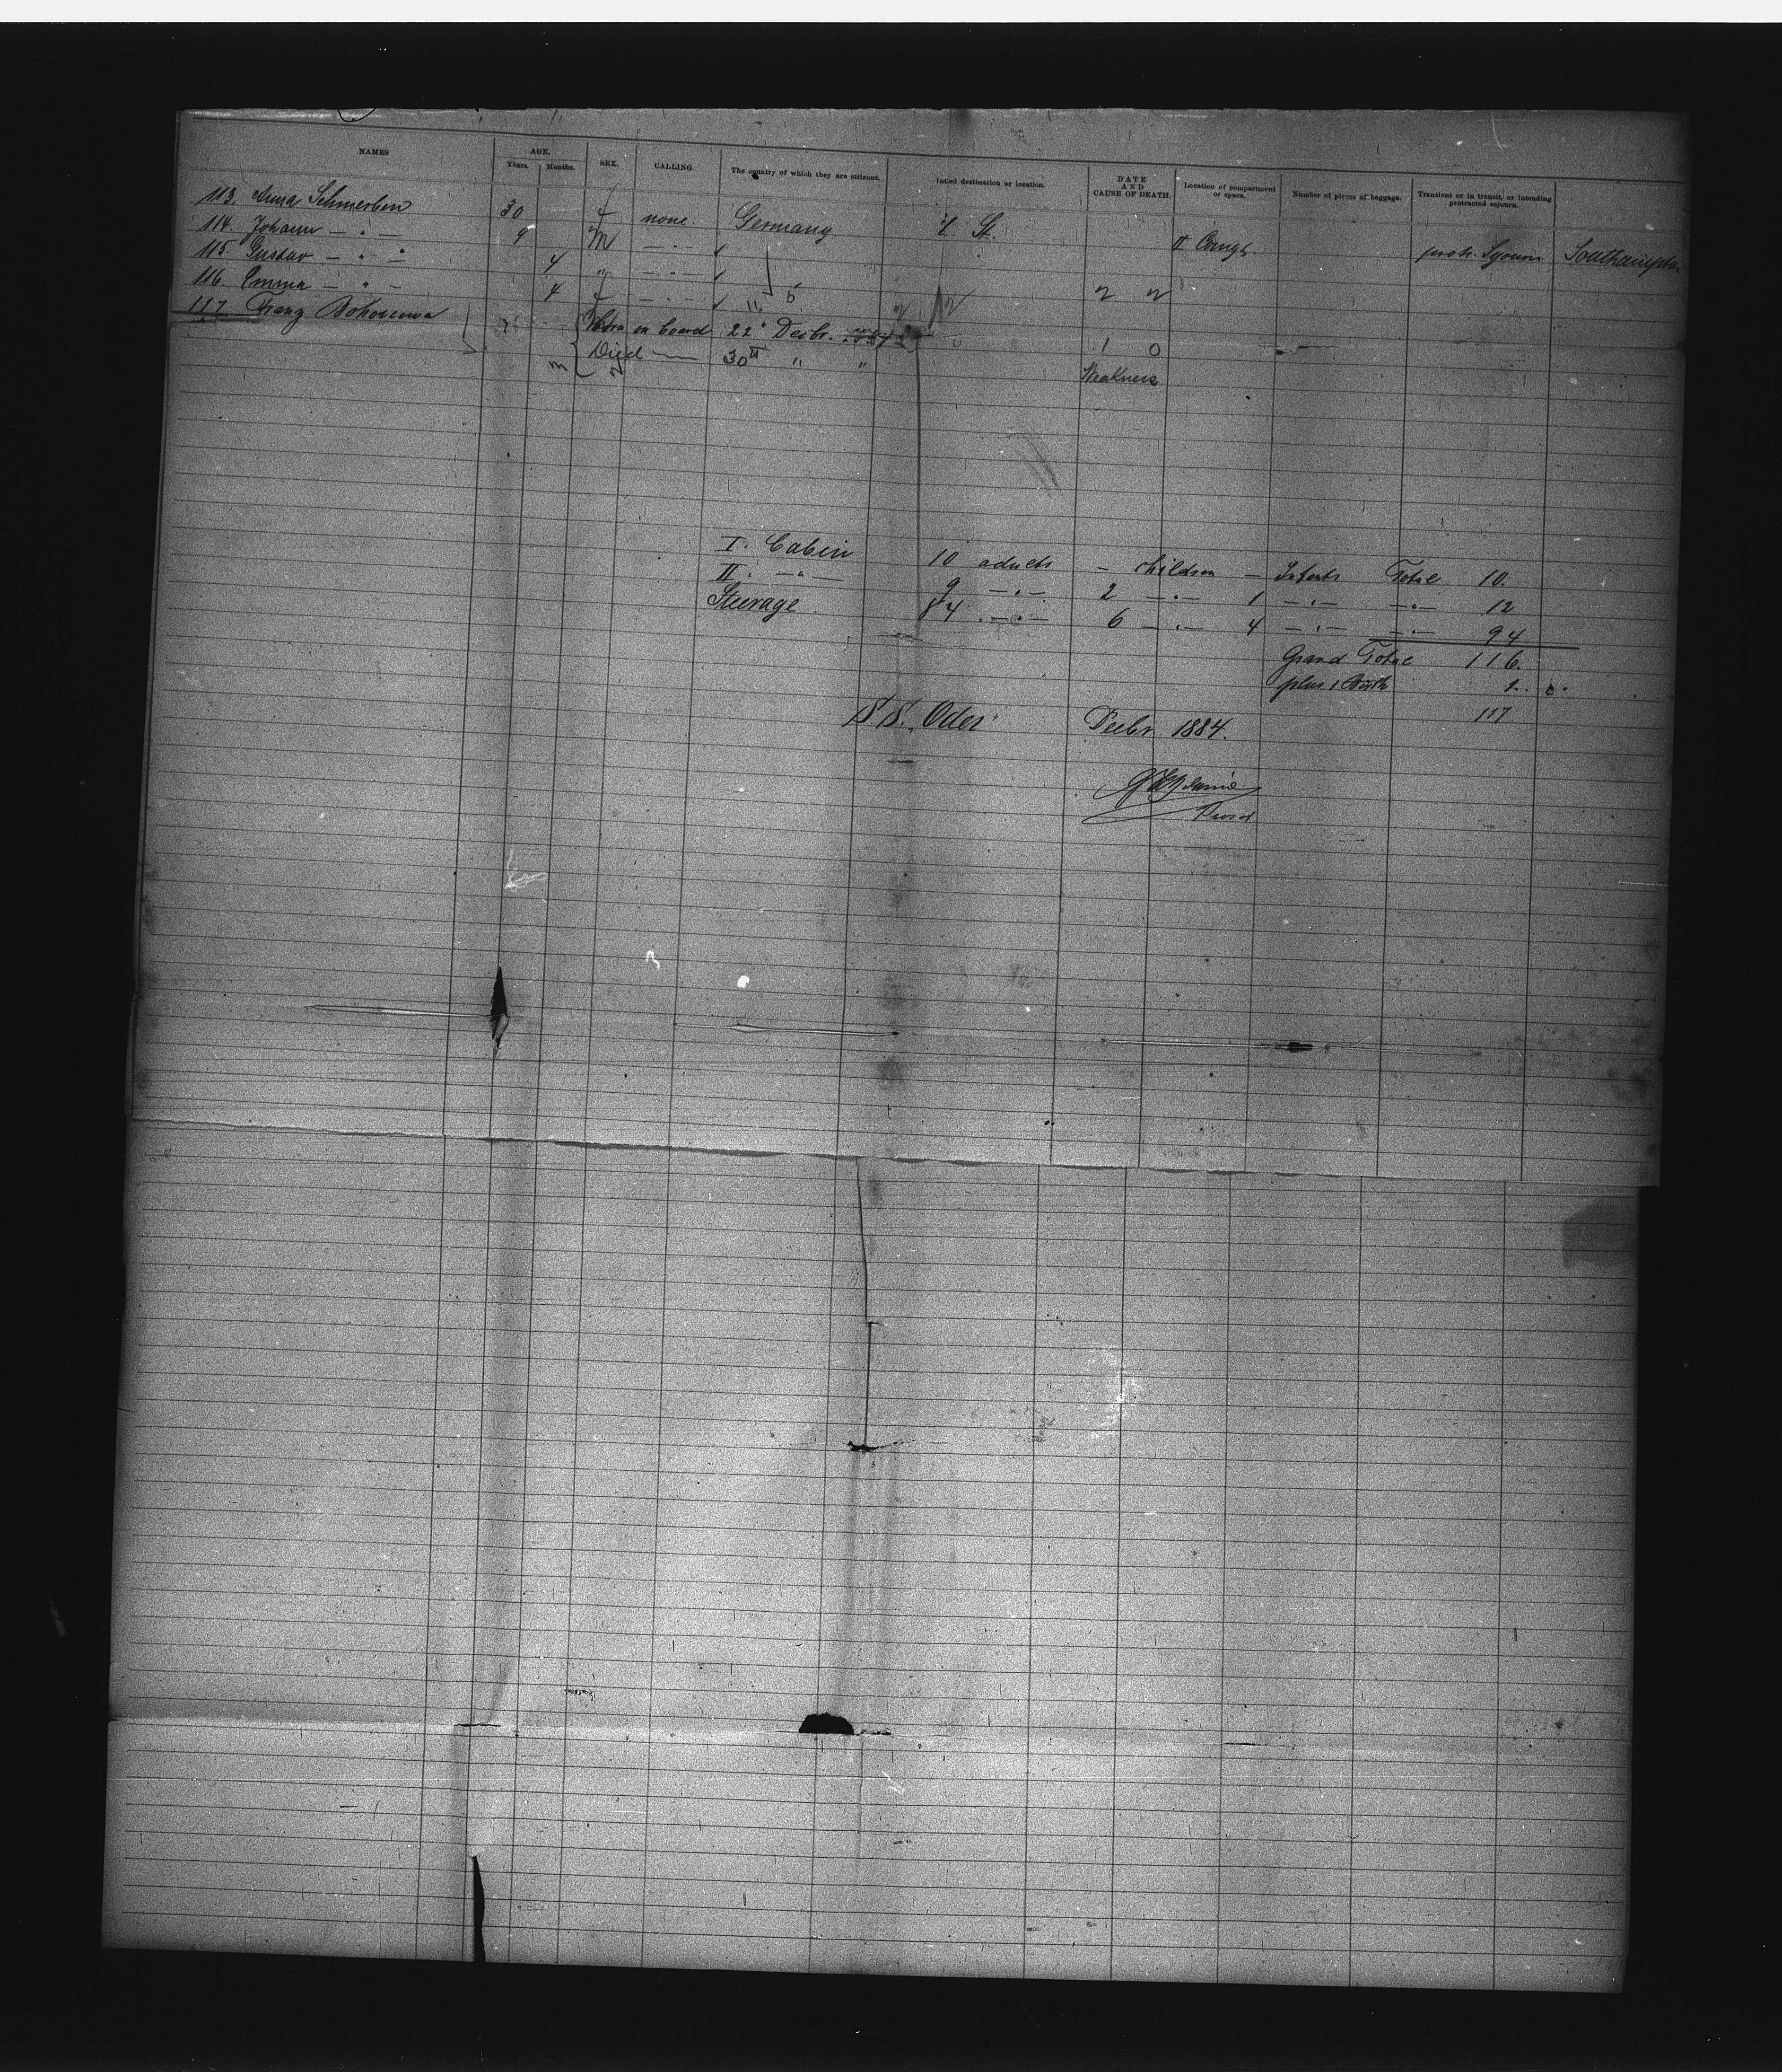 NAMES AGE. Years. Months. SEX. CALLING. The country of which they are citizens. Intied destination or location. DATE AND CAUSE OF DEATH. Location of compartment or space. Number of pieces of baggage. Transient or in transit, or intending protracted sojourn.
113. Anna Schmerben 30 f none. Germany. U. St. II Compt. protr. Sojourn Southampton
114. Johann — " — 9 m — " —
115. Gustav — " — 4 " — " —
116. Emma — " — 4 f — " —
117 Franz Born on board 22 Decbr. 1 0
Died — 30 " " Weakness
I. Cabin 10 adults – children – Infants Total 10.
II. — " — 9 — " — 2 — " — 1 — " — — " — 12
Steerage 84 — " — 6 — " — 4 — " — — " — 94
Grand Total 116.
plus 1 Birth 1.
117
S.S. "Oder" Decbr 1884.